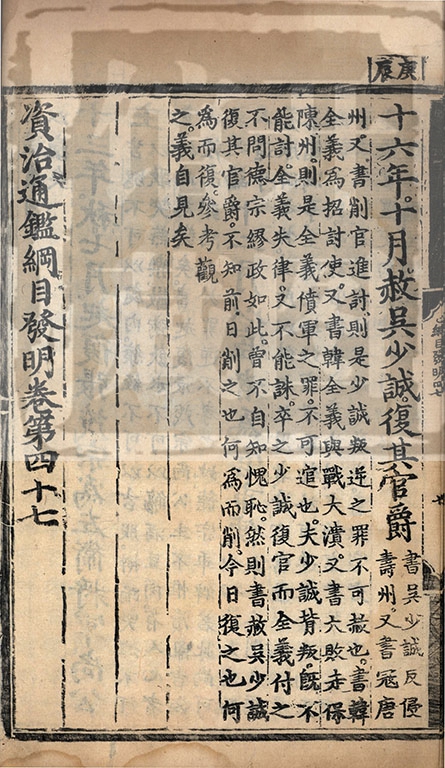 庚辰
十六年。十月。赦吳少誠。復其官爵 書吳少誠反。侵
壽州。又書寇唐
州。又書削官進討。則是少誠叛逆之罪不可赦也。書韓
全義爲招討使。又書韓全義與戰大潰。又書大敗走保
陳州。則是全義僨軍之罪。不可逭也。夫少誠背叛。旣不
能討。全義失律。又不能誅。卒之少誠復官而全義付之
不問。德宗繆政如此。曾不自愧恥。然則書赦吳少誠
復其官爵。不知前日削之也何爲而削。今日復之也何
爲而復。參考觀
之。義自見矣
資治通鑑綱目發明卷第四十七